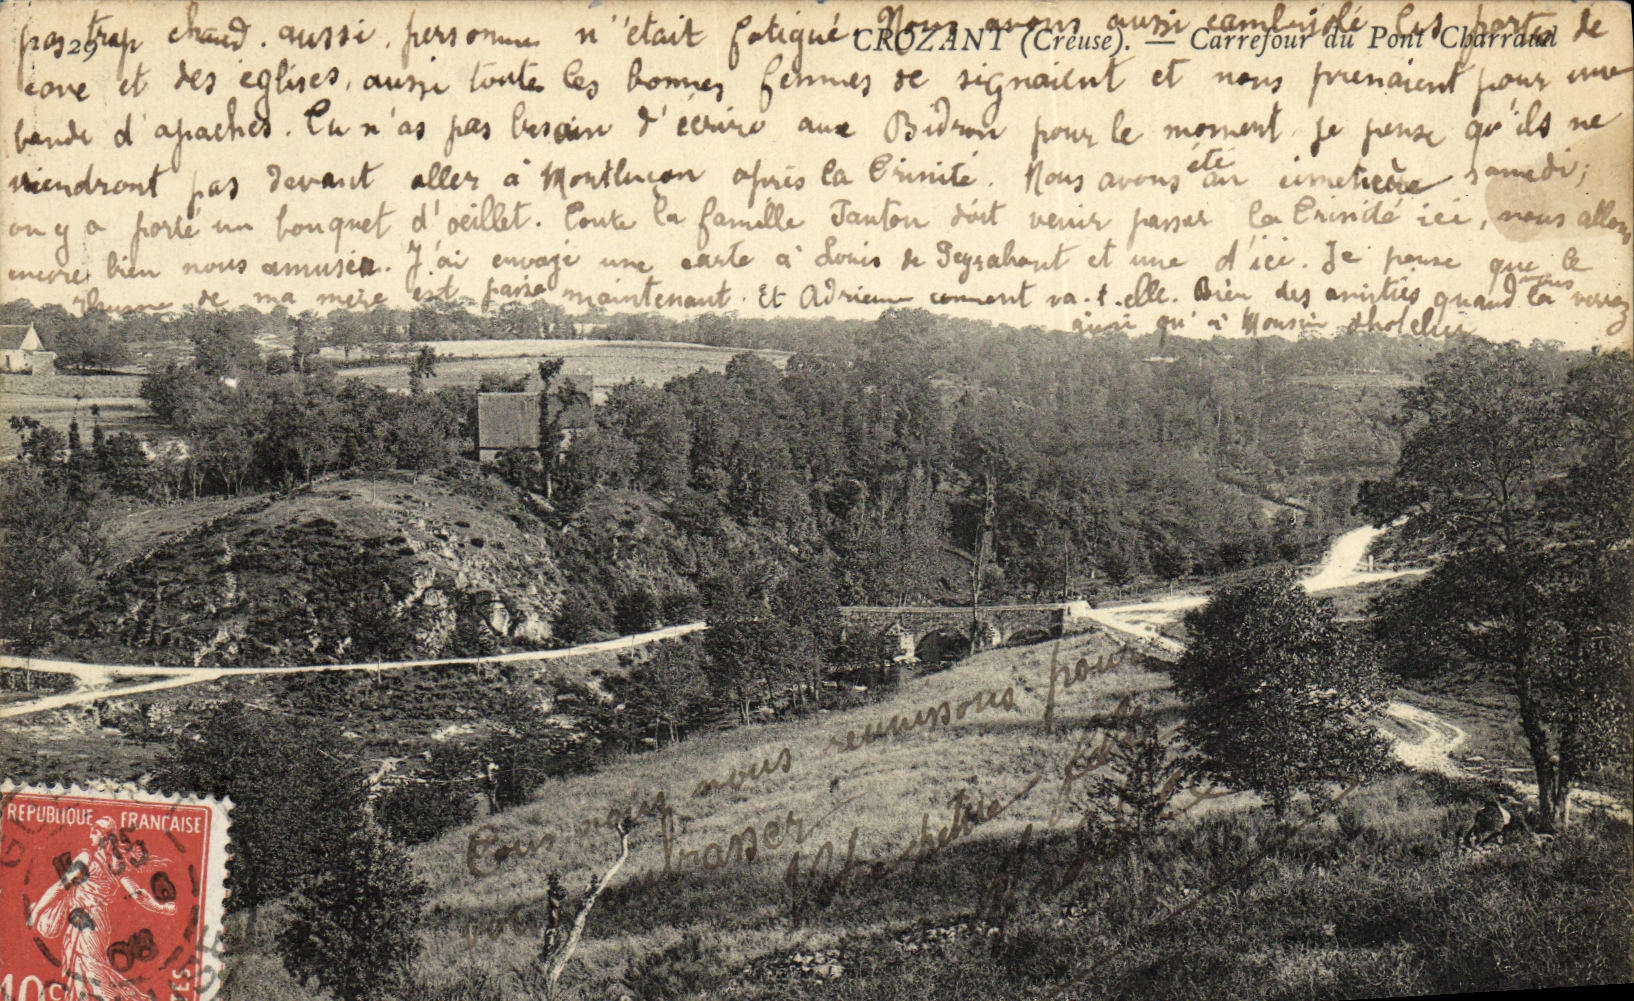 pas trop chaud. aussi, personne n'était fatigué. Nous avons aussi cambriolé les portes de
29 CROZANT (Creuse). — Carrefour du Pont Charraud
cave et des églises, aussi toutes les bonnes femmes se signaient et nous prenaient pour une
bande d'apaches. Tu n'as pas besoin d'écrire aux Bidron pour le moment je pense qu'ils ne
viendront pas devant aller à Montluçon après la Trinité. Nous avons été au cimetière samedi;
on y a porté un bouquet d'oeillet. Toute la famille Tanton doit venir passer la Trinité ici, nous allons
encore bien nous amuser. J'ai envoyé une carte à Louis de et une d'ici. Je pense que le
rhume de ma mère est passé maintenant. Et Adrienne comment va-t-elle. Bien des amitiés quand vous la verrez
ainsi qu'à
Tous nous nous réunissons pour
vous embrasser
Votre petite
REPUBLIQUE FRANÇAISE
15 35
9 6
08
10 c